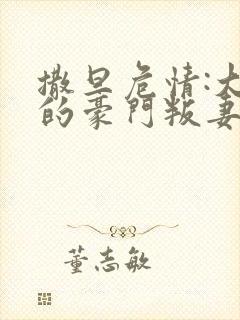 撒旦危情:大
的豪門叛妻
董志敏